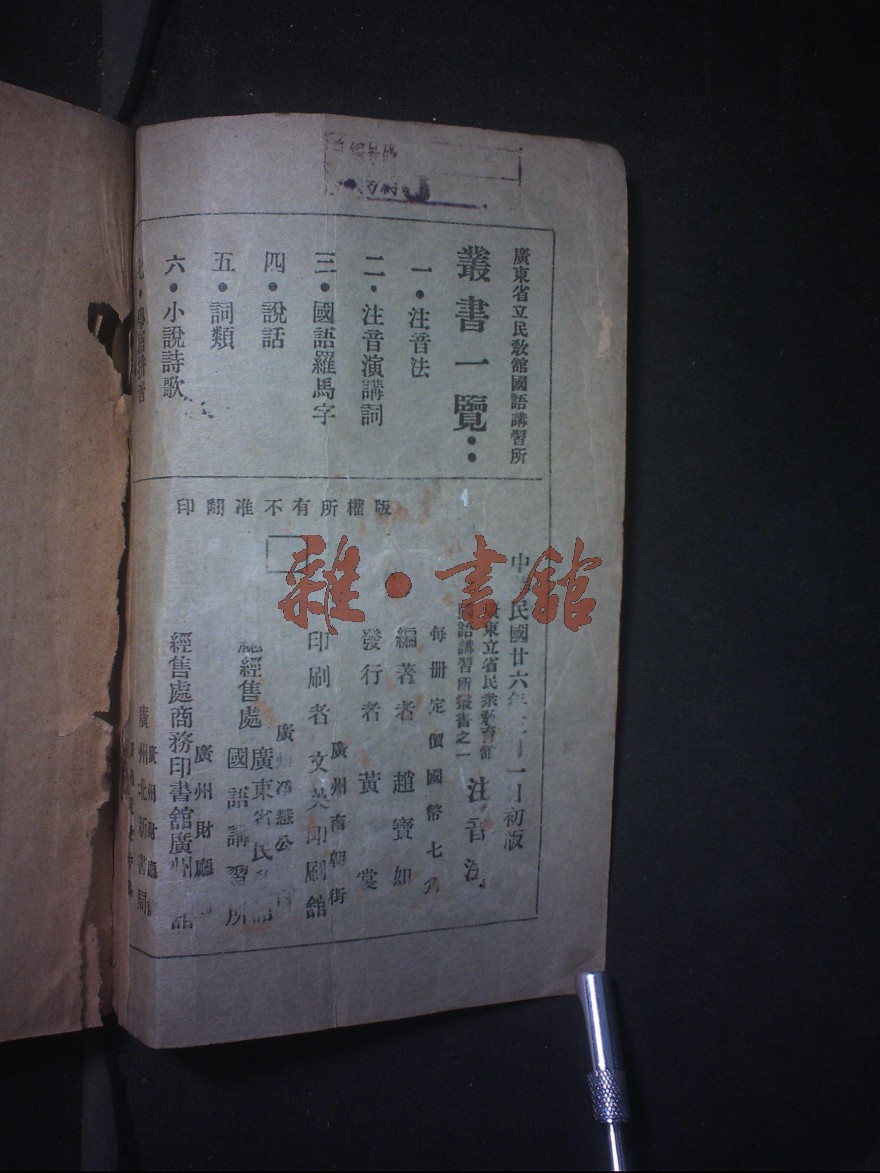 廣東省立民敎館國語講習所
叢書一覽：
一・注音法
二・注音演講詞
三・國語羅馬字
四・說話
五・詞類
六・小說詩歌
七・
版權所有不准翻印
雜・書館
中民國廿六年一月初版
廣東立省民衆敎育館
國語講習所叢書之一
注音法
每册定價國幣七角
編著者 趙寶如
發行者 黃裳
廣州南朝街
印刷者 文英印刷館
廣州惠公
總經售處 廣東省民敎館
國語講習所
廣州財廳
經售處商務印書館廣州館
廣州財廳
廣州北新書局